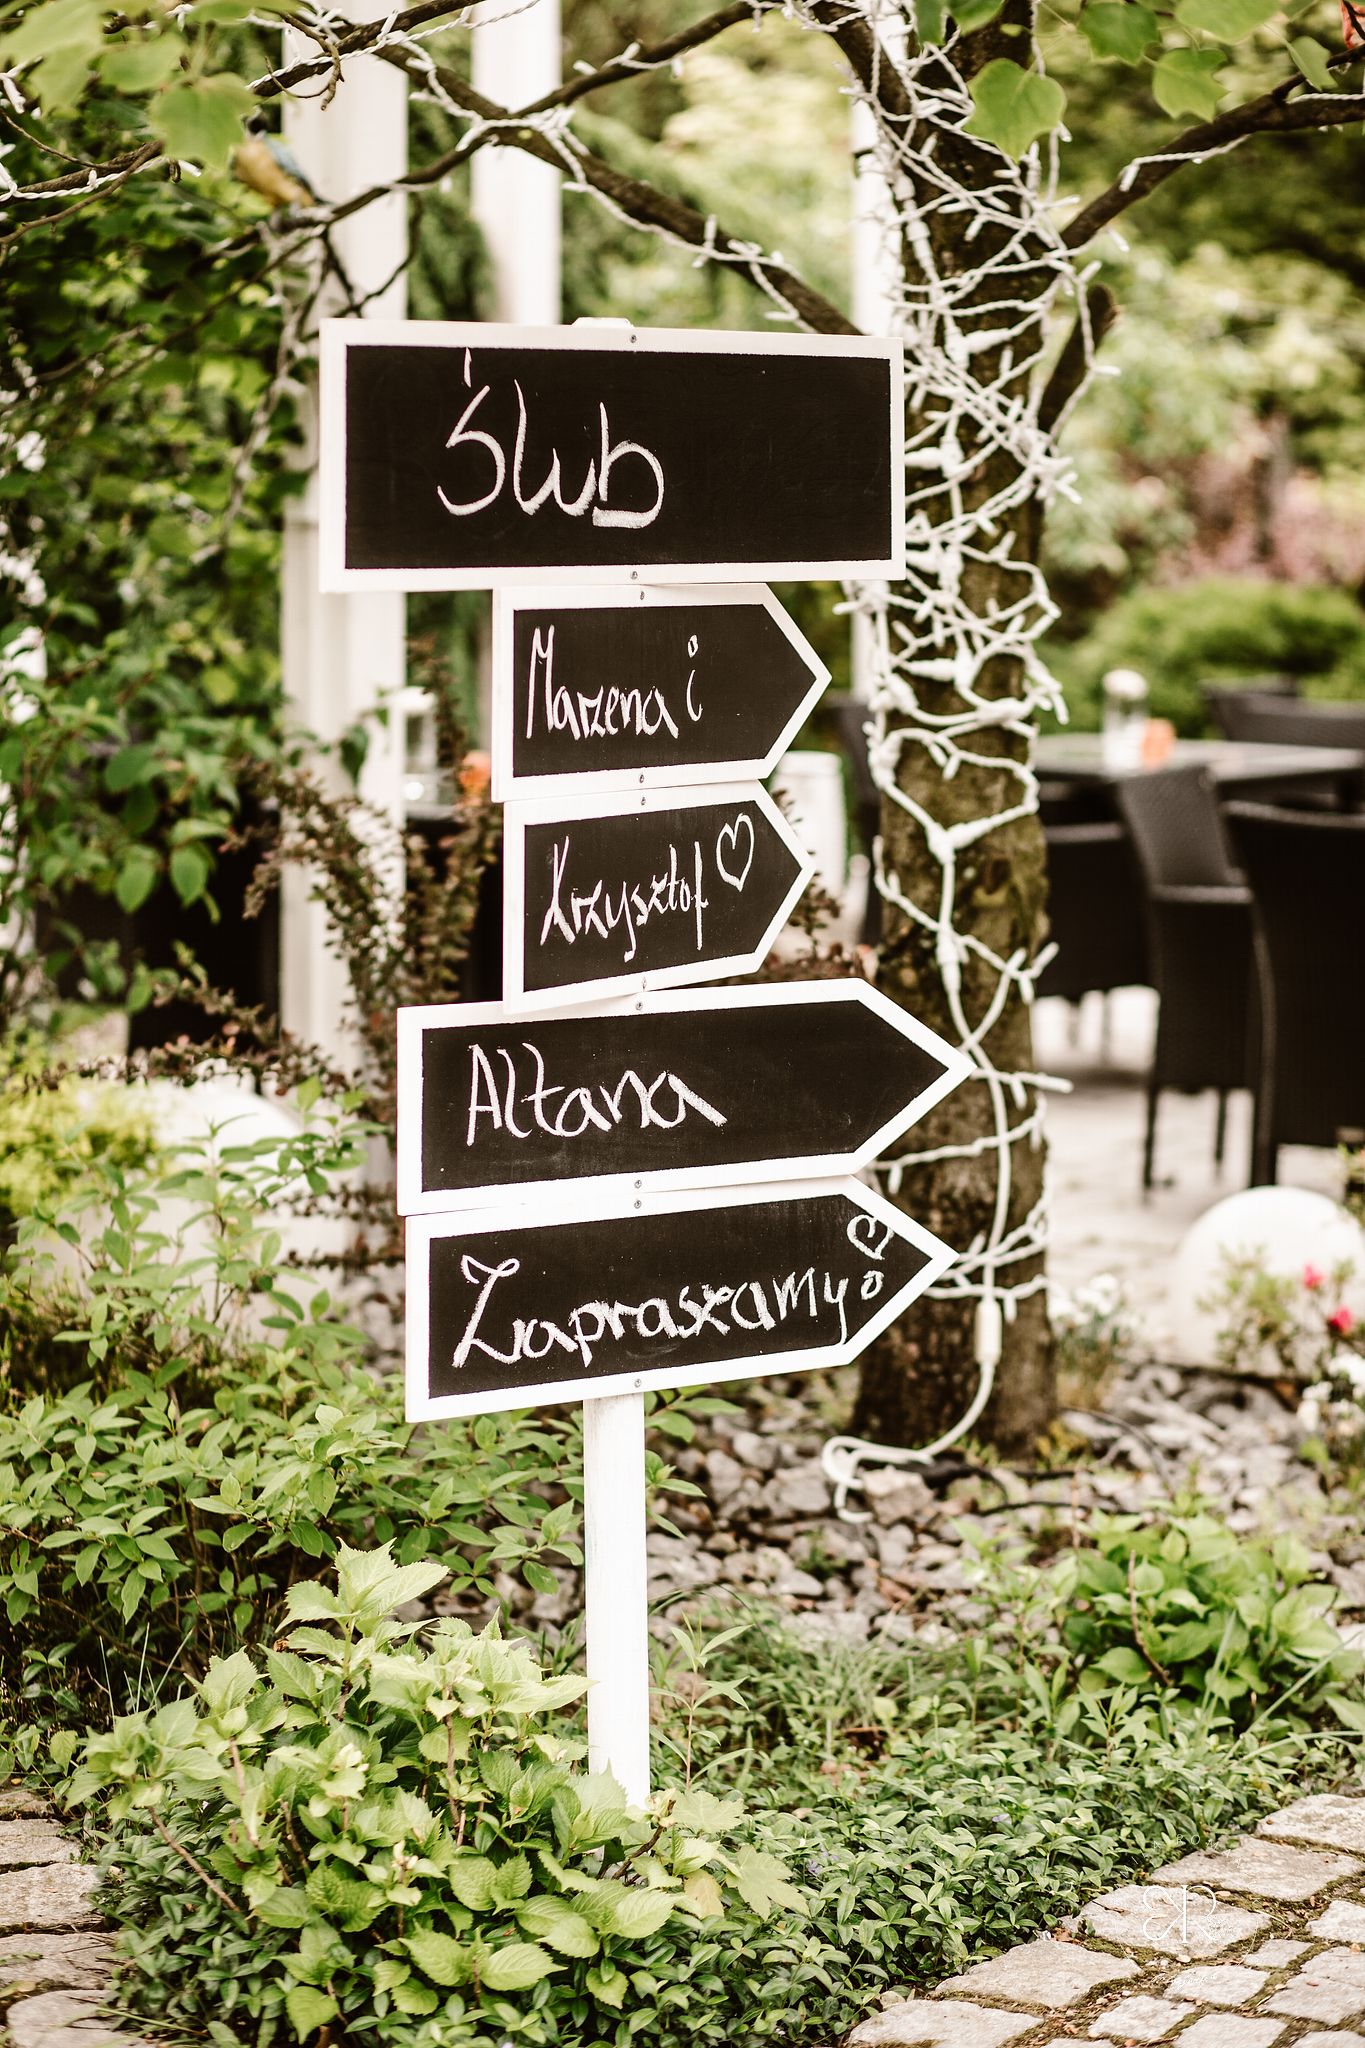 Ślub
Marzena i
Krzysztof ♡
Altana
Zapraszamy ♡